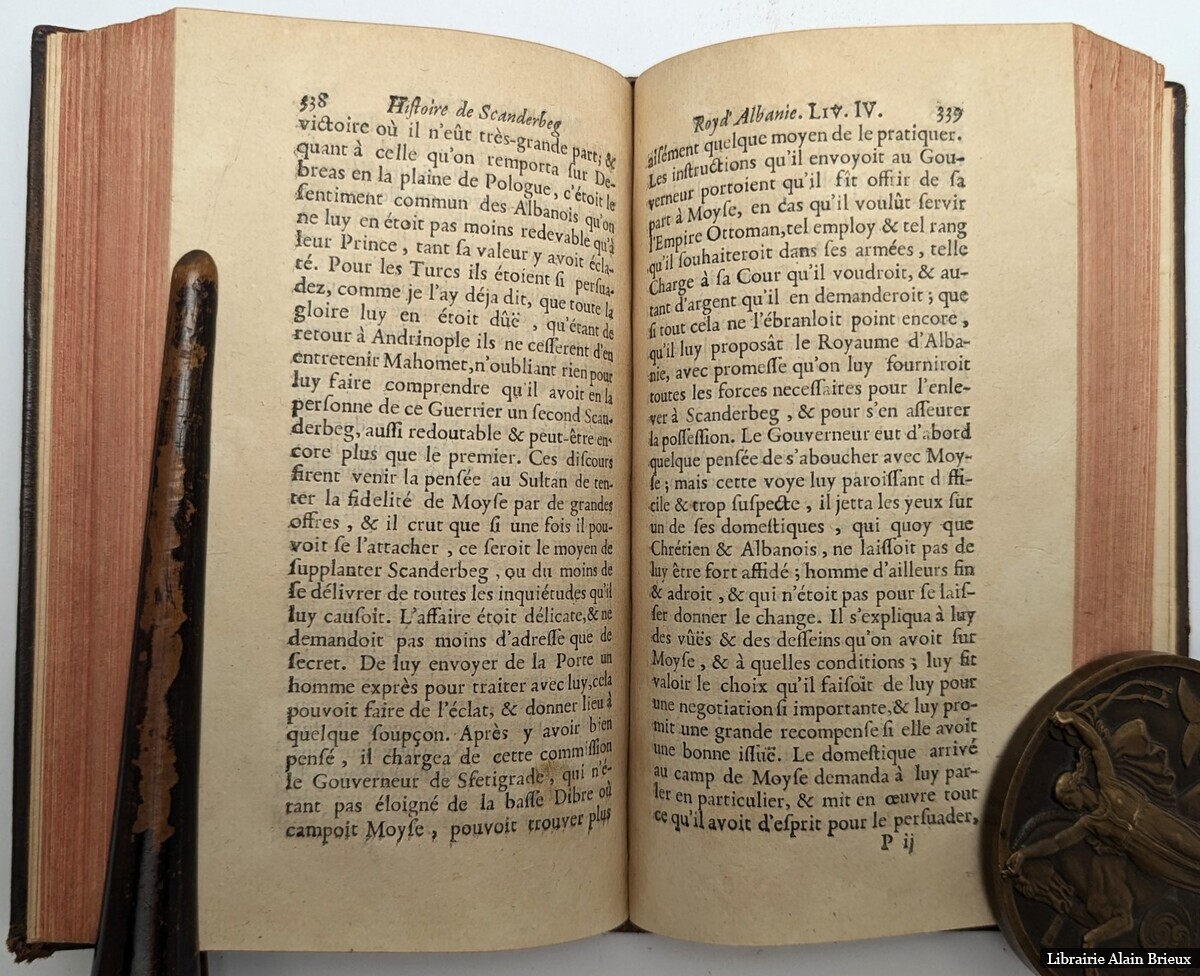 538 Histoire de Scanderbeg
victoire où il n'eût très-grande part; &
quant à celle qu'on remporta sur De-
breas en la plaine de Pologue, c'étoit le
sentiment commun des Albanois qu'on
ne luy en étoit pas moins redevable qu'à
leur Prince, tant sa valeur y avoit écla-
té. Pour les Turcs ils étoient si persua-
dez, comme je l'ay déja dit, que toute la
gloire luy en étoit dûë, qu'étant de
retour à Andrinople ils ne cesserent d'en
entretenir Mahomet, n'oubliant rien pour
luy faire comprendre qu'il avoit en la
personne de ce Guerrier un second Scan-
derbeg, aussi redoutable & peut-être en-
core plus que le premier. Ces discours
firent venir la pensée au Sultan de ten-
ter la fidelité de Moyse par de grandes
offres, & il crut que si une fois il pou-
voit se l'attacher, ce seroit le moyen de
supplanter Scanderbeg, ou du moins de
se délivrer de toutes les inquiétudes qu'il
luy causoit. L'affaire étoit délicate, & ne
demandoit pas moins d'adresse que de
secret. De luy envoyer de la Porte un
homme exprès pour traiter avec luy, cela
pouvoit faire de l'éclat, & donner lieu à
quelque soupçon. Après y avoir bien
pensé, il chargea de cette commission
le Gouverneur de Sfetigrade, qui n'é-
tant pas éloigné de la basse Dibre où
campoit Moyse, pouvoit trouver plus
Roy d'Albanie. LIV. IV. 339
aisément quelque moyen de le pratiquer.
Les instructions qu'il envoyoit au Gou-
verneur portoient qu'il fit offrir de sa
part à Moyse, en cas qu'il voulût servir
l'Empire Ottoman, tel employ & tel rang
qu'il souhaiteroit dans ses armées, telle
Charge à sa Cour qu'il voudroit, & au-
tant d'argent qu'il en demanderoit; que
si tout cela ne l'ébranloit point encore,
qu'il luy proposât le Royaume d'Alba-
nie, avec promesse qu'on luy fourniroit
toutes les forces necessaires pour l'enle-
ver à Scanderbeg, & pour s'en asseurer
la possession. Le Gouverneur eut d'abord
quelque pensée de s'aboucher avec Moy-
se; mais cette voye luy paroissant d ffi-
cile & trop suspecte, il jetta les yeux sur
un de ses domestiques, qui quoy que
Chrétien & Albanois, ne laissoit pas de
luy être fort affidé; homme d'ailleurs fin
& adroit, & qui n'étoit pas pour se lais-
ser donner le change. Il s'expliqua à luy
des vûës & des desseins qu'on avoit sur
Moyse, & à quelles conditions; luy fit
valoir le choix qu'il faisoit de luy pour
une negotiation si importante, & luy pro-
mit une grande recompense si elle avoit
une bonne issuë. Le domestique arrivé
au camp de Moyse demanda à luy par-
ler en particulier, & mit en œuvre tout
ce qu'il avoit d'esprit pour le persuader,
P ij
Librairie Alain Brieux